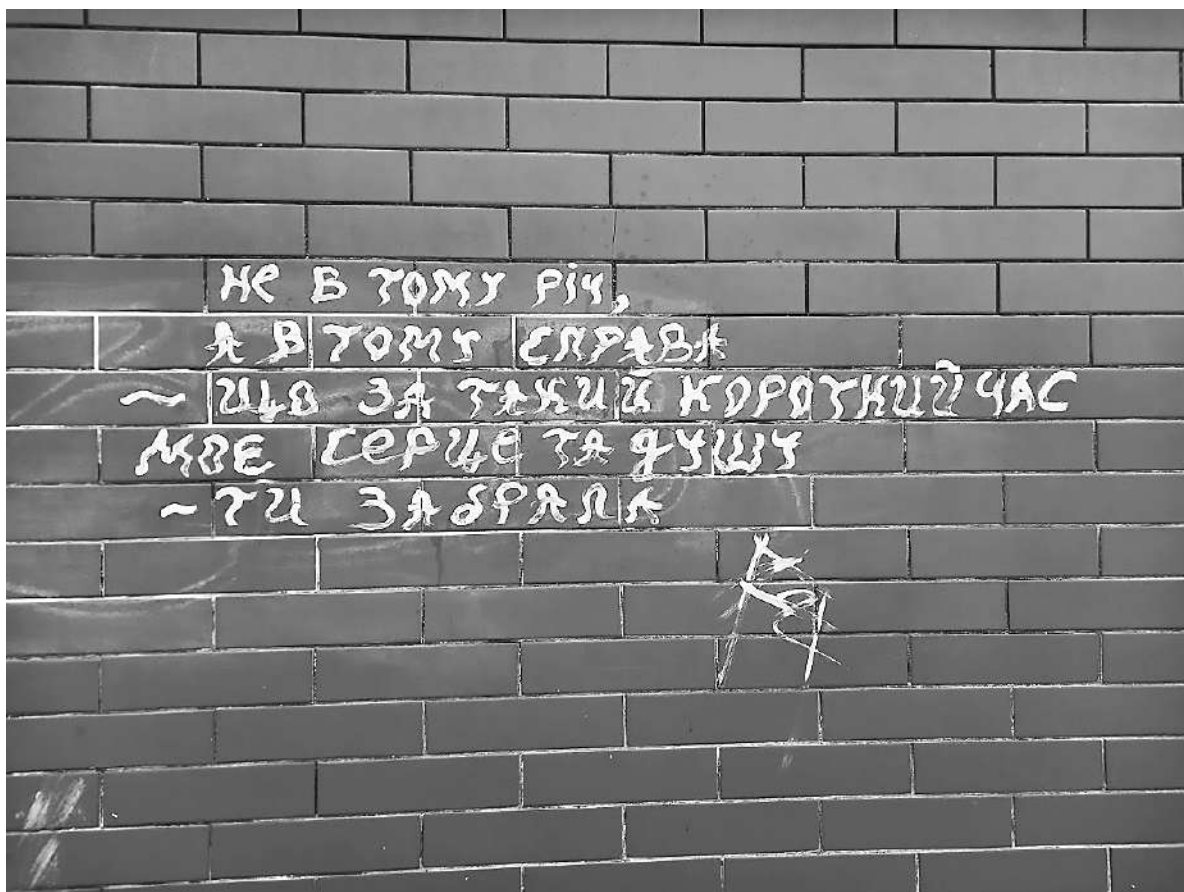 не в тому річ,
а в тому справа
~ що за такий короткий час
моє серце та душу
~ ти забрала